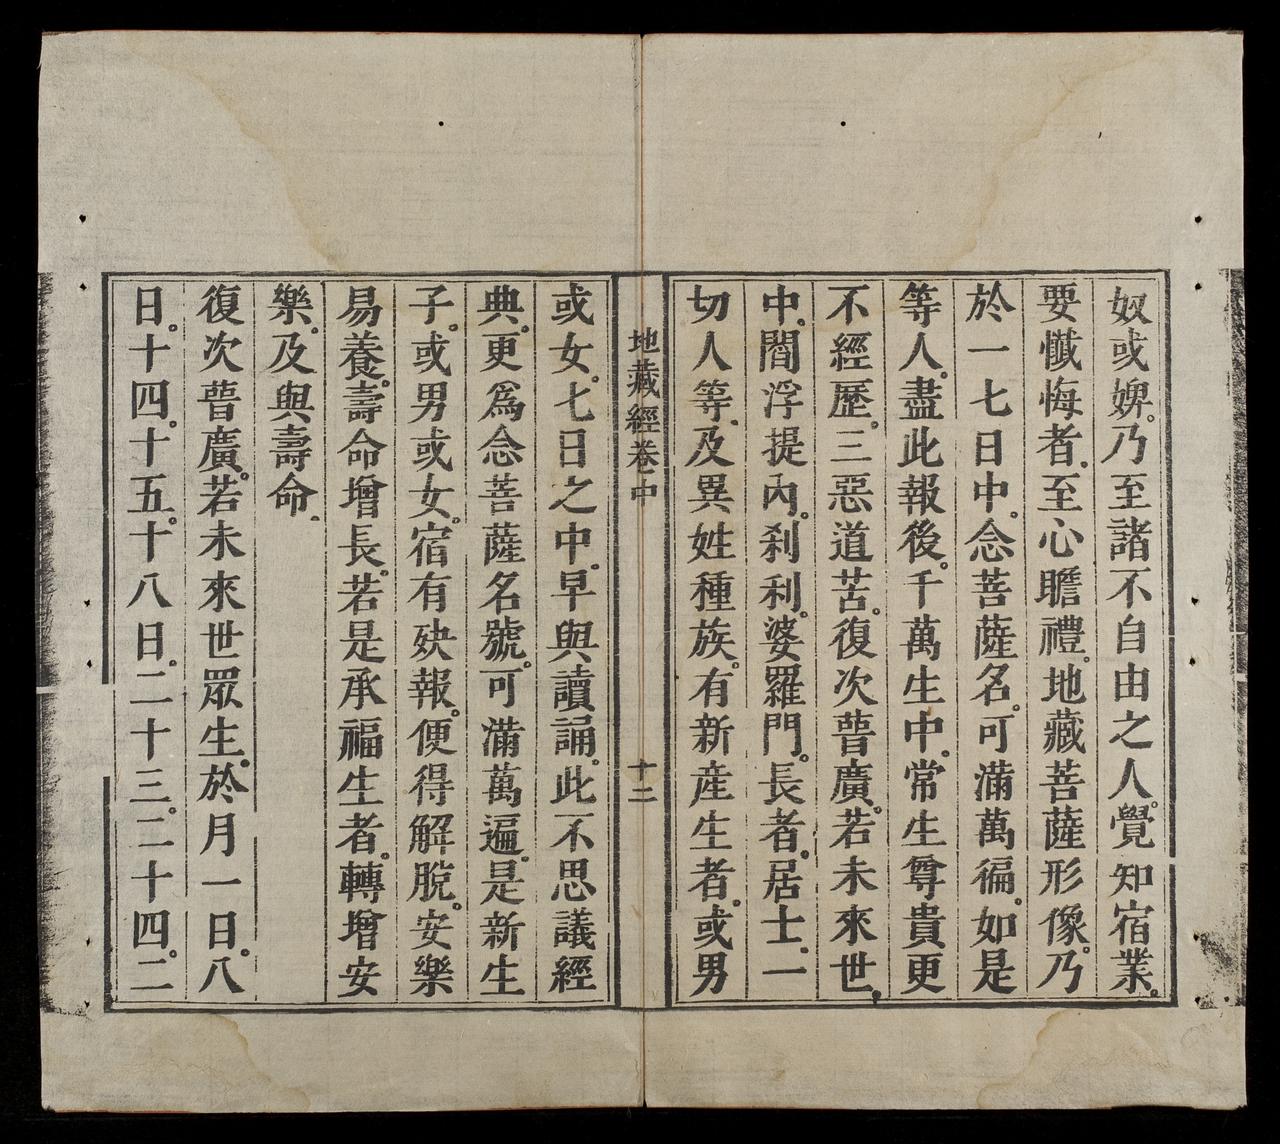 奴或婢。乃至諸不自由之人。覺知宿業。
要懺悔者。至心瞻禮。地藏菩薩形像。乃
於一七日中。念菩薩名。可滿萬徧。如是
等人。盡此報後。千萬生中。常生尊貴更
不經歷。三惡道苦。復次普廣。若未來世。
中。閻浮提內。剎利。婆羅門。長者。居士。一
切人等。及異姓種族。有新產生者。或男
地藏經卷中
十二
或女。七日之中。早與讀誦。此不思議經
典。更為念菩薩名號。可滿萬遍。是新生
子。或男或女。宿有殃報。便得解脫。安樂
易養。壽命增長。若是承福生者。轉增安
樂。及與壽命。
復次普廣。若未來世眾生。於月一日。八
日。十四。十五。十八日。二十三。二十四。二